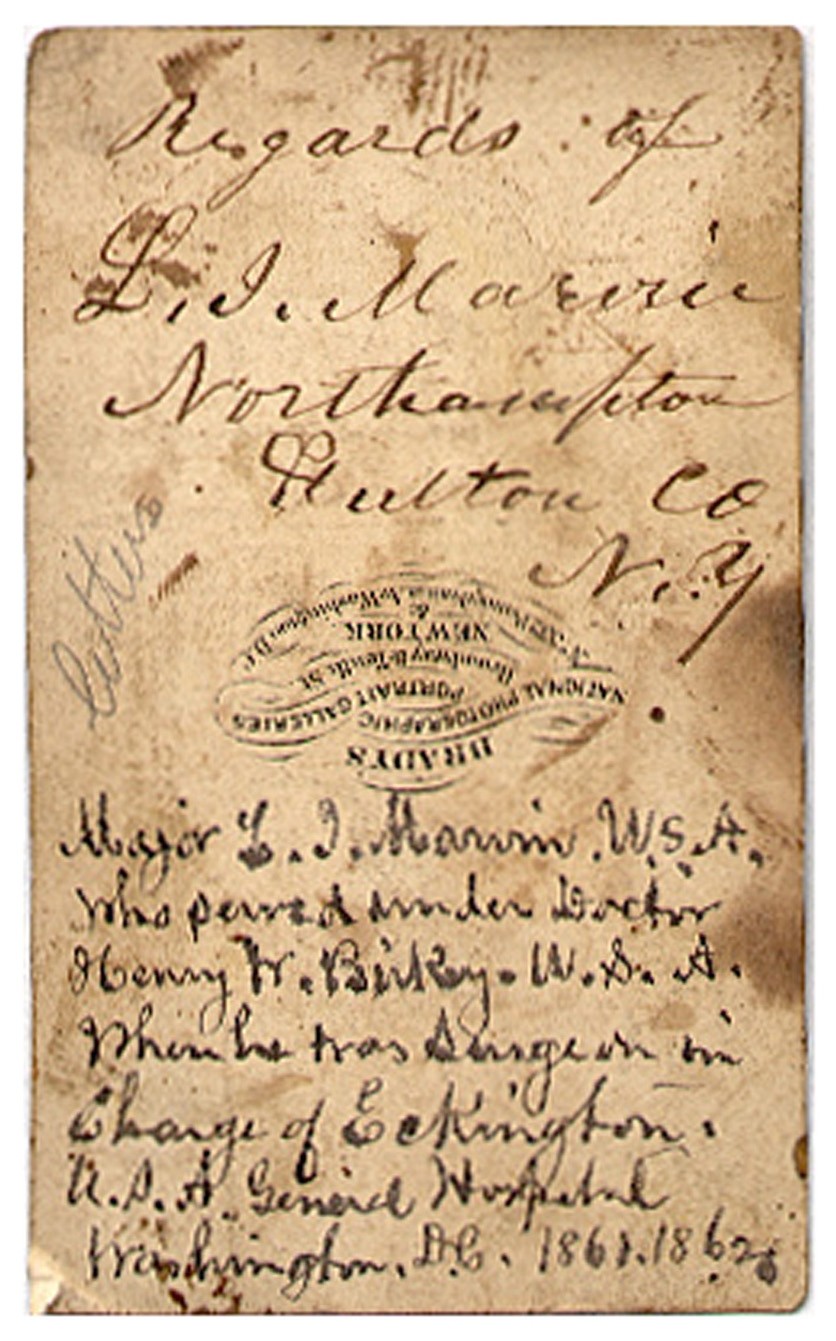 Regards of
L. I. Marvin
Northampton
Fulton Co
N.Y
BRADY'S
NATIONAL PHOTOGRAPHIC
PORTRAIT GALLERIES
Broadway & Tenth St.
NEW YORK
&
No. 352 Pennsylvania Av. Washington D.C.
Major L. I. Marvin. U.S.A.
Who served under Doctor
Henry W. Birkey. U.S.A.
When he was Surgeon in
Charge of Eckington.
U.S.A. General Hospital
Washington. D.C. 1861.1862